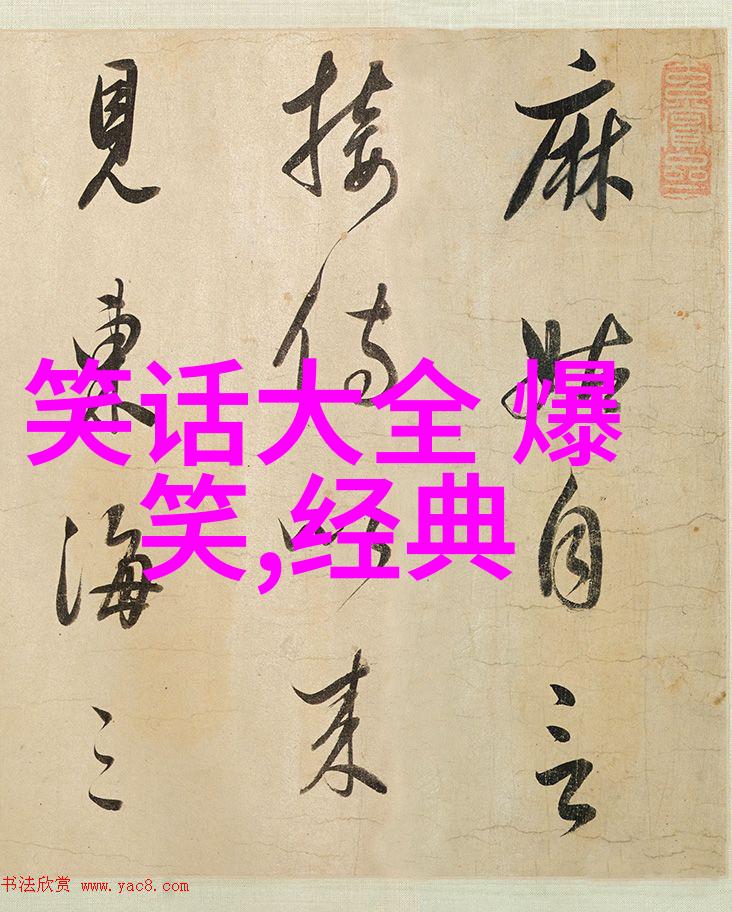 麻姑自言
接侍以来
見東海三
笑话大全 爆
笑,经典
书法欣赏 www.yac8.com